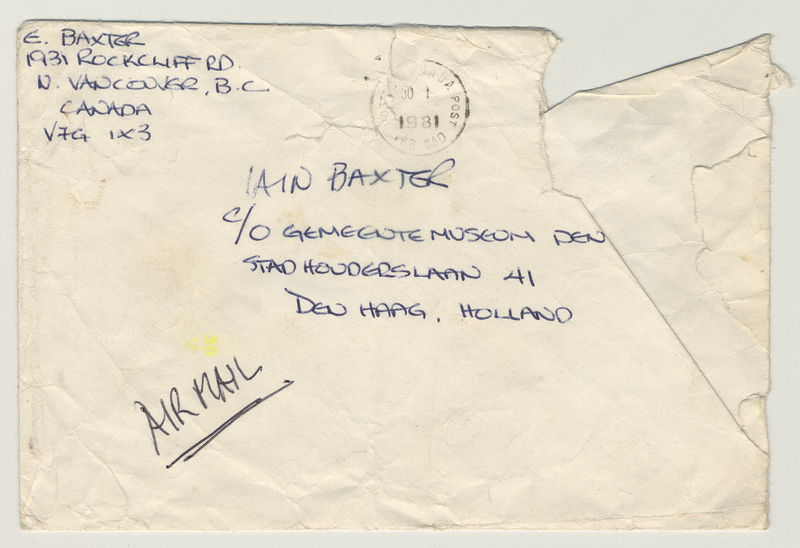 E. BAXTER
1931 ROCKCLIFF RD.
N. VANCOUVER, B.C.
CANADA
V7G 1X3
CANADA POST
30 I
1981
IAIN BAXTER
C/O GEMEENTEMUSEUM DEN
STADHOUDERSLAAN 41
DEN HAAG, HOLLAND
AIR MAIL